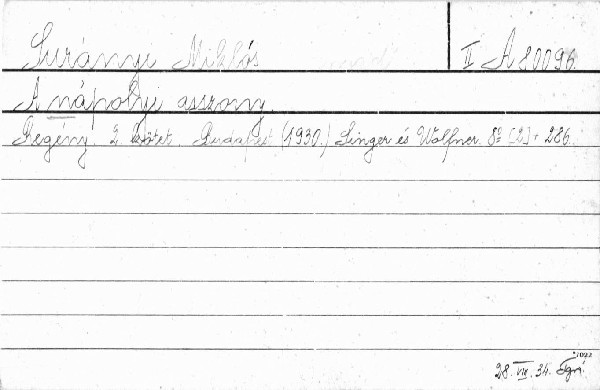 Surányi Miklós II A 80096.
A nápolyi asszony.
Regény. 2 kötet. Budapest (1930.) Singer és Wolfner. 8° [2]+ 286.
28. VIII. 34.